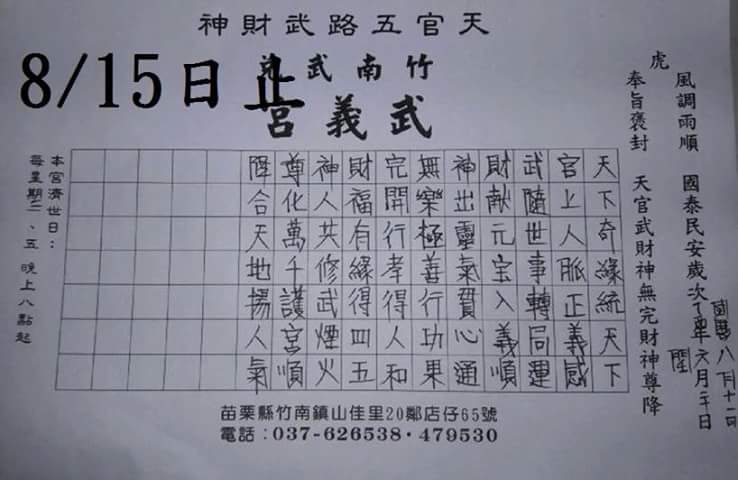 天官五路武財神
竹南武
武義宮
8/15日止
國曆八月十一日
風調雨順 國泰民安歲次丁酉年六月二十日
虎
奉旨褒封 天官武財神無完財神尊降
天下奇緣統天下
官上人脈正義感
武隨世事轉局運
財献元宝入義順
神出靈氣貫心通
無樂極善行功果
完開行孝得人和
財福有緣得四五
神人共修武煙火
尊化萬千護宮順
降合天地揚人氣
本宮濟世日：
每星期二、五 晚上八點起
苗栗縣竹南鎮山佳里20鄰店仔65號
電話：037-626538·479530